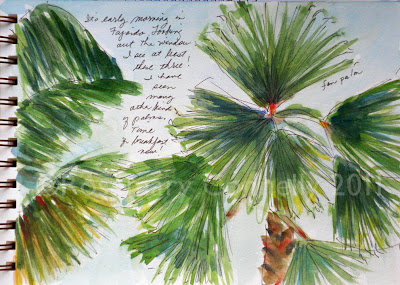 It's early morning in
Fajardo. Looking
out the window
I see at least
these three!
I have
seen
many
other kinds
of palms.
Time
for breakfast
now!
fan palm
2011